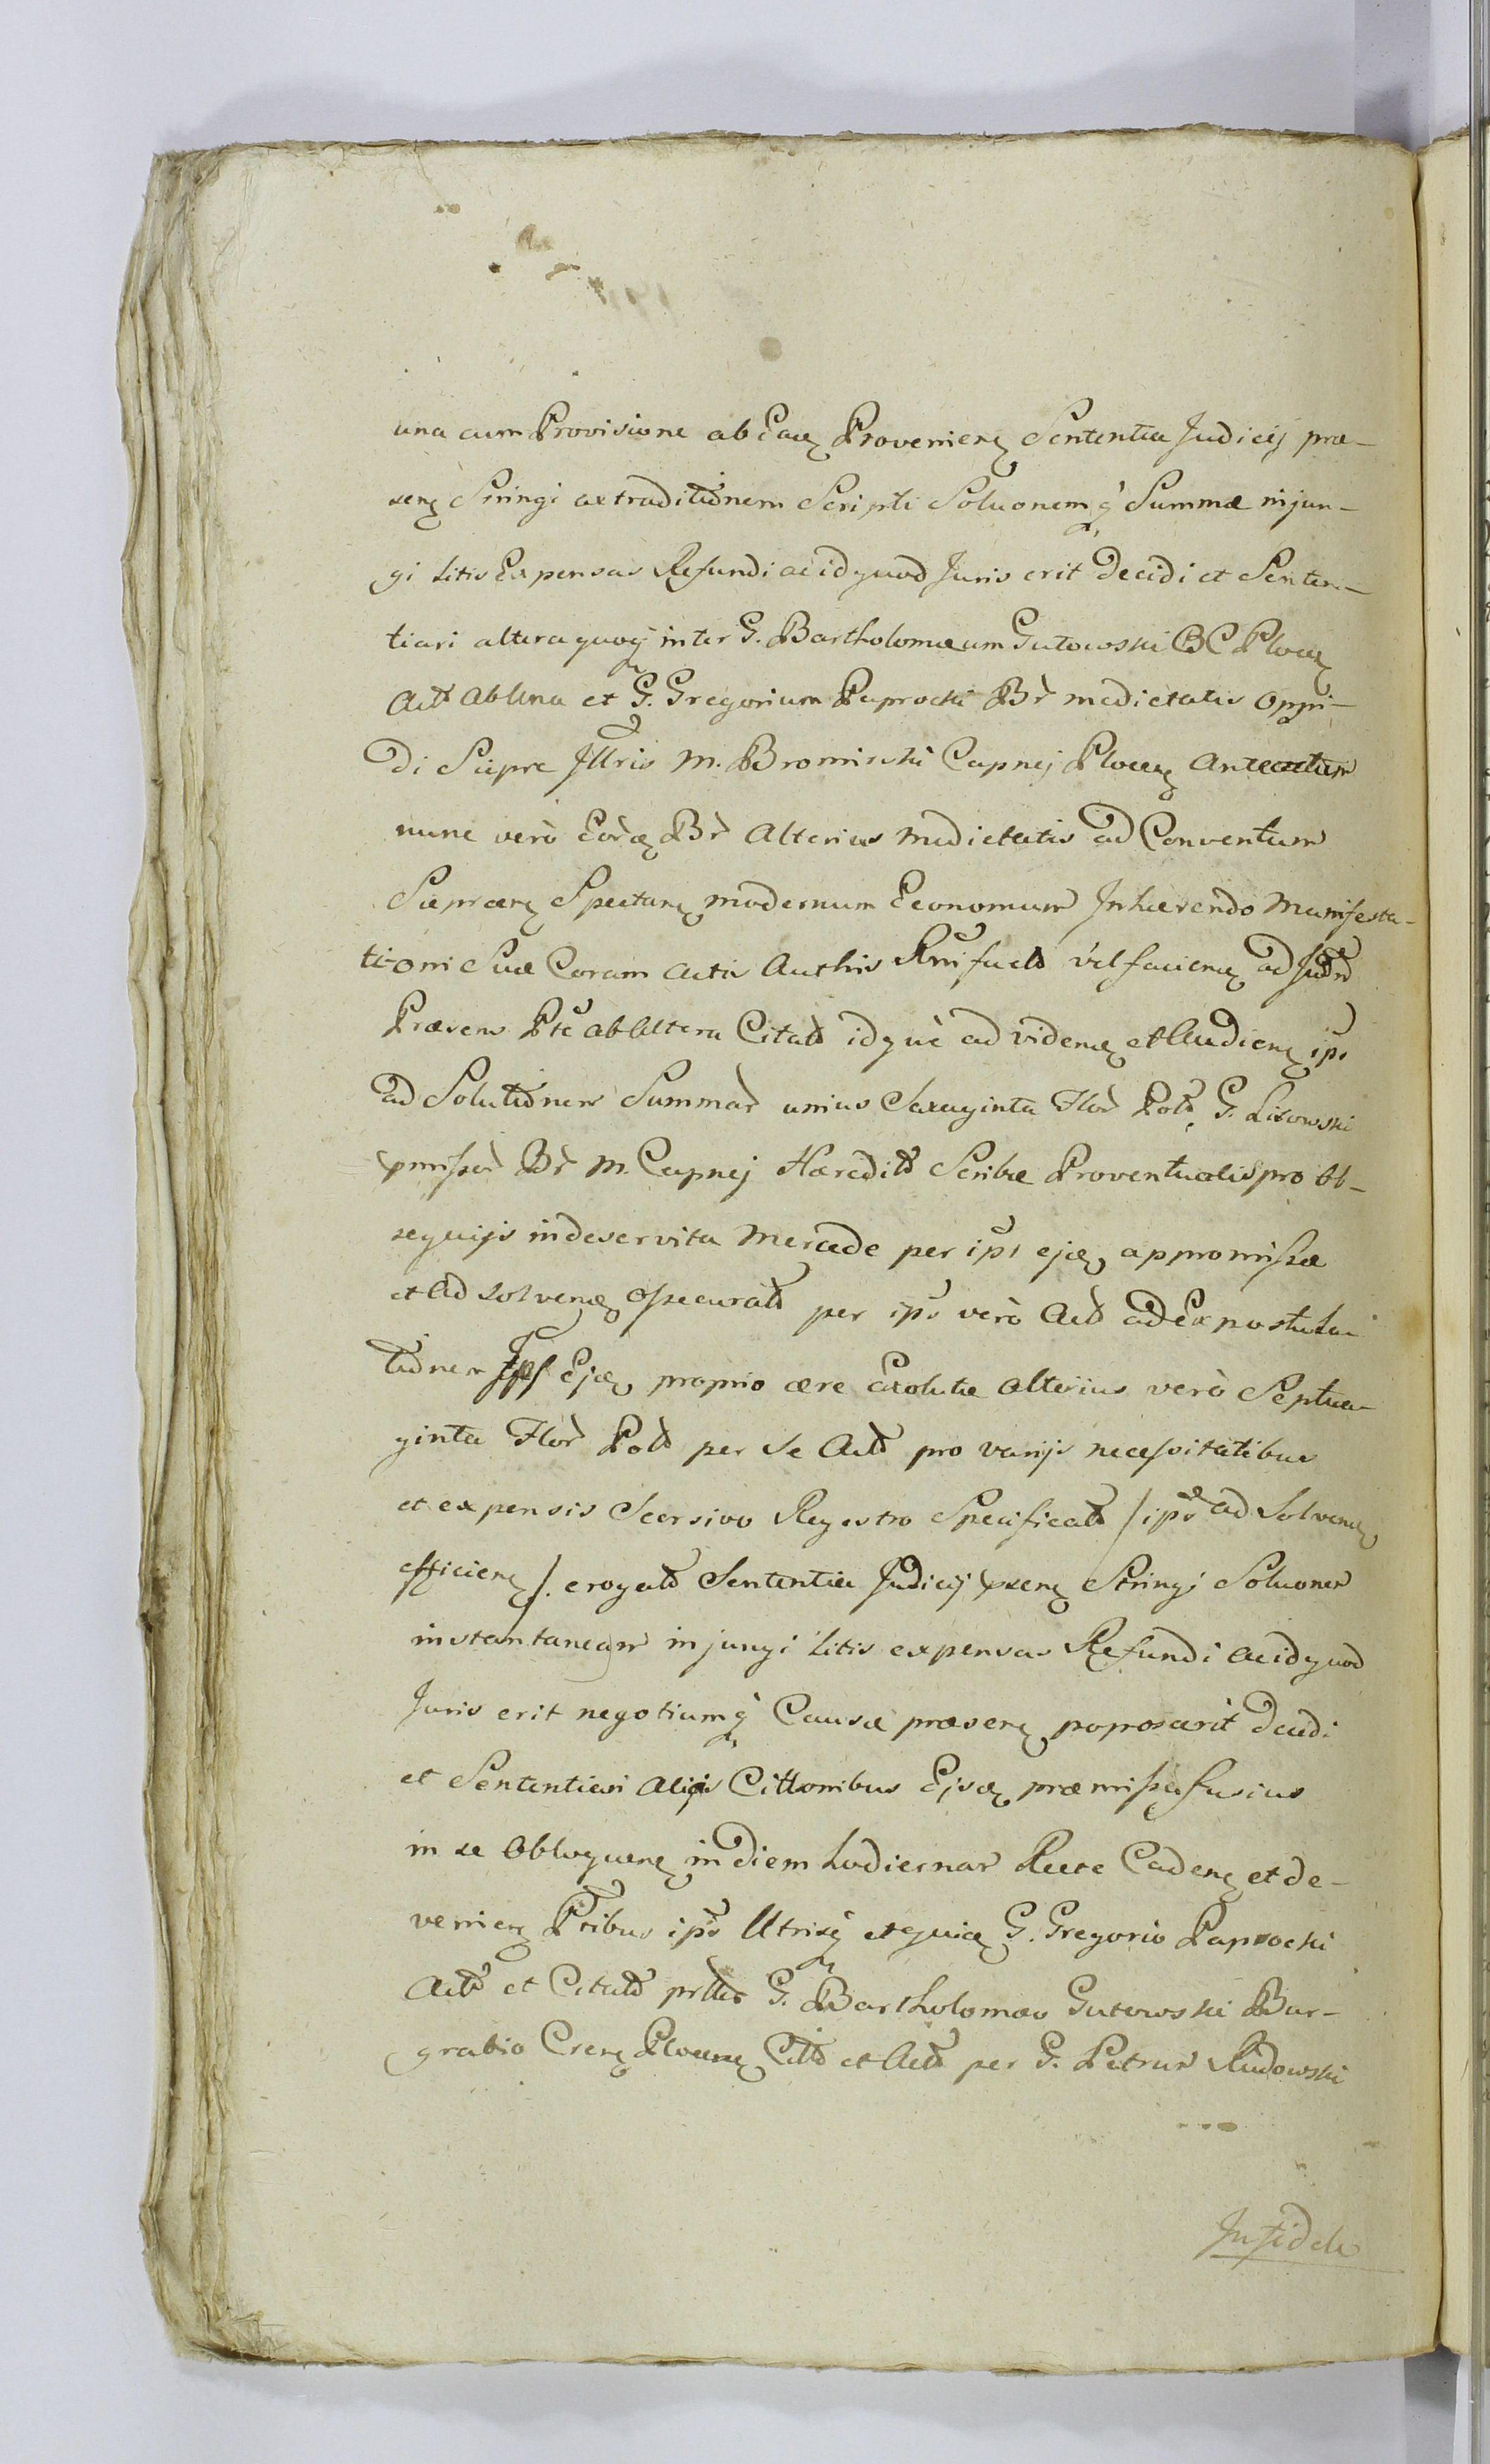 una cum Provisione ab Eaꝗ Provenienꝫ Sententia Judicij præ-
senꝫ Stringi extraditionem Scripti Soluonemq̃ Summæ injun-
gi Litis Expensas Refundi ac id quod Juris erit Decidi et Senten-
tiari altera quoq̃ inter G. Bartholomæum Gutowski BC Plocenꝫ
Act̃ ab Una et G. Gregorium Paprocki Br̃ medietatis Oppi-
di Sieprc Jllris M. Bromirski Capnej Plocenꝫ
nunc verò Br̃ Alterius Medietatis ad Conventum
Sieprcenꝫ Spectanꝫ modernum Economum Jnhærendo Manifesta-
ti-oni Suæ Coram Actis Authñis Rñi fact̃ vel faciend̃ ad Jud̃m
Præsens Pte ab Altera Citat̃ idque ad videnꝫ et Audienꝫ ips̃
ad Solutionem Summar̃ unius Sexaginta Flor̃ Pol̃ G. Lisowski
pmisšor̃ Br̃ M. Capnej Hæredit̃ Scribæ Proventualis pro Ob-
sequijs indeservita Mercede per ips̃ ejꝫ appromissæ
et ad solvenꝫ assecurat̃ per ips̃ verò Act̃ ad Expostula-
tionem Ejꝫ proprio ære Exolutæ alterius verò Septua-
ginta Flor̃ Pol̃ per se Act̃ pro varijs necessitatibus
et expensis Seorsivo Regestro Specificat̃ / ips̃ ad Solvenꝫ
efficienꝫ /. erogat̃ Sententia Judicij pñsenꝫ Stringi Soluonem
instantaneam injungi litis expensas Refundi ac id quod
Juris erit negotiumq̃ Causæ præsenꝫ poposcerit Decidi
et Sententiari alijs Cittionibus Ejsdꝫ præmissa fusius
in se Obloquenꝫ in Diem hodiernam Recte Cadenꝫ et de-
venienꝫ Ptibus ips̃ Utrisq̃ G. Gregorio Paprocki
Act̃ et Citat̃ G. Bartholomæo Gutowski Bur-
grabio Crenꝫ Plocenꝫ Citt̃ et Act̃ per G. Petrum Rudowski
Jnfidele